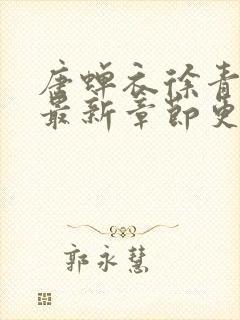 唐蝉衣徐青
最新章节更
郭永慧